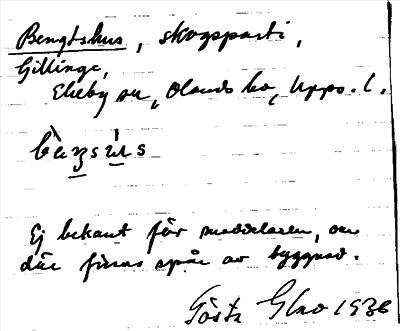 Bengtshus, skogsparti,
Gillinge,
Ekeby sn, Olands hd, Upps. l.
Ej bekant för meddelaren, om
där finnas spår av byggnad.
Gösta 1936